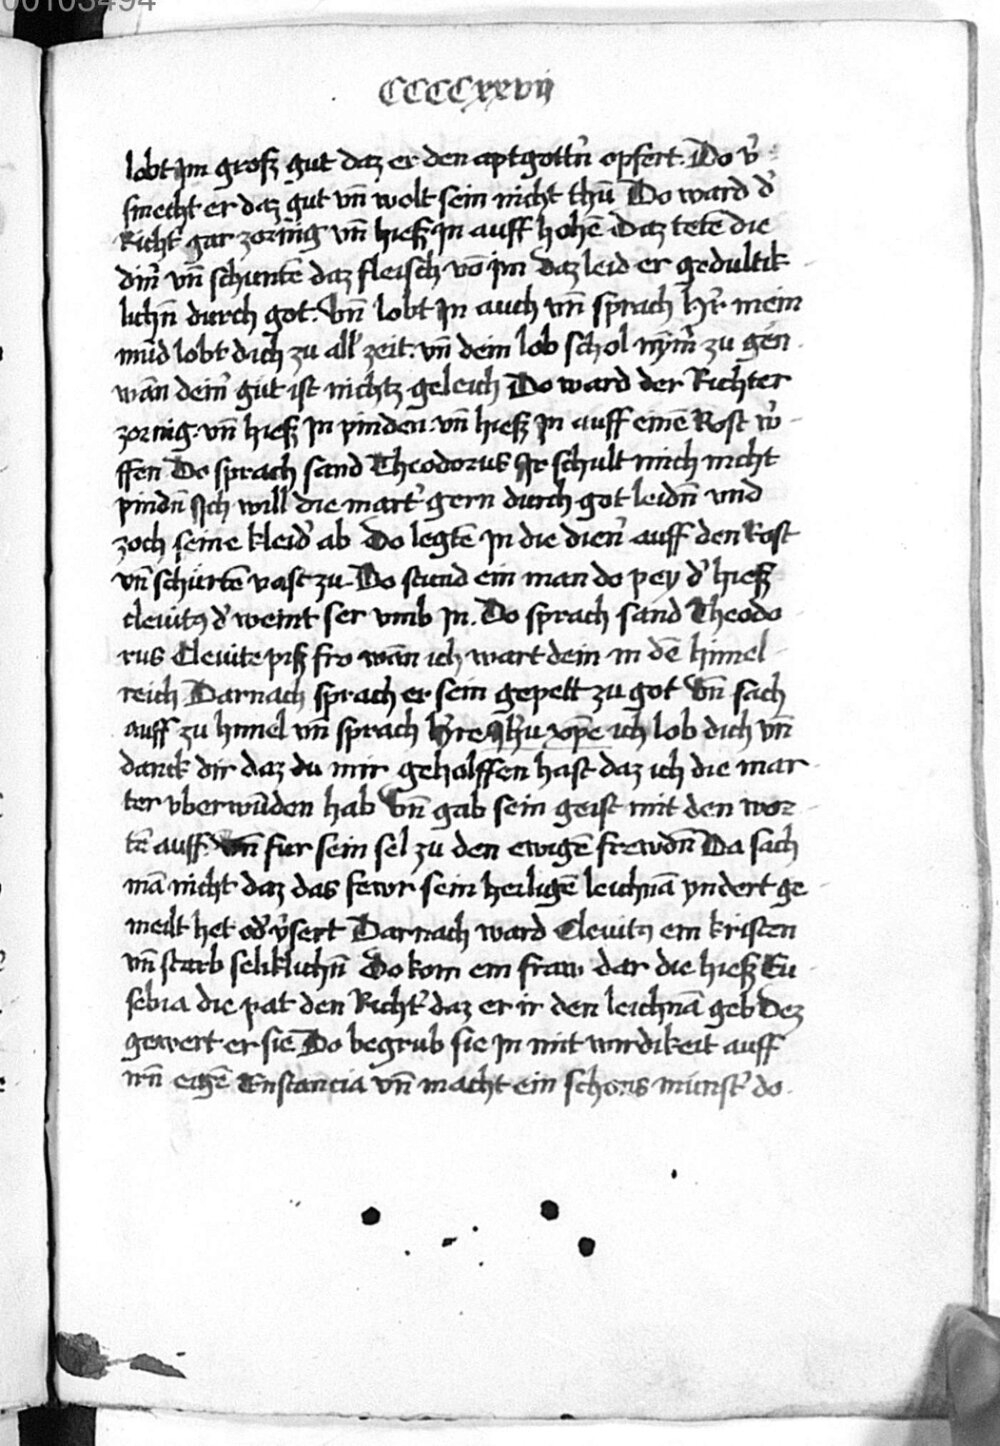 00103494
CCCCxxvij
lobt jm grosz gut daz er den aptgottn̄ opfert. Do v̓
smecht er daz gut vn̄ wolt sein nicht thu̅ Do ward d̓
Richt̓ gar zornig vn̄ hiesz jn auff hohe̅ Daz tete̅ die
din̓ vn̄ schunte̅ daz fleisch vo̅ jm daz leid er gedultik
lichn̄ durch got. Vn̄ lobt jn auch vn̄ sprach H̓r mein
mu̅d lobt dich zu all̓ zeit. vn̄ dein lob schol nym̓ zu gen
wan̄ dein̓ gut ist nichtz geleich Do ward der Richter
zornig. vn̄ hiesz jn pinden. vn̄ hiesz jn auff eine̅ Rost w̓
ffen Do sprach sand Theodorus Jr schult mich nicht
pindn̄ Jch will die mart̓ gern durch got leidn̄ vnd
zoch seine kleid̓ ab Do legte̅ jn die dien̓ auff den Rost
vn̄ schürte̅ vast zu. Do stund ein man do pey d̓ hiesz
cleuitꝰ d̓ weint ser vmb jn. Do sprach sand Theodo
rus Cleuite pisz fro wan̄ ich wart dein in de̅ himel
reich Darnach sprach er sein gepett zu got Vn̄ sach
auff zu himel vn̄ sprach H̓re Jh̓u xp̅e ich lob dich vn̄
danck dir daz du mir geholffen hast daz ich die mar
ter vberwu̅den hab Vn̄ gab sein geist mit den wor
te̅ auff. Vn̄ fur sein sel zu den ewige̅ frewdn̄ Da sach
ma̅ nicht daz das fewr sein heilige̅ leichna̅ yndert ge
meilt het od̓ v̓sert Darnach ward Cleuitꝰ ein kristen
vn̄ starb seliklichn̄ Do kom ein fraw dar die hiesz Eu
sebia die pat den Richt̓ daz er ir den leichna̅ geb Dez
gewert er sie Do begrub sie jn mit wirdikeit auff
irn̄ eige̅ Enstancia vn̄ macht ein schons munst̓ do